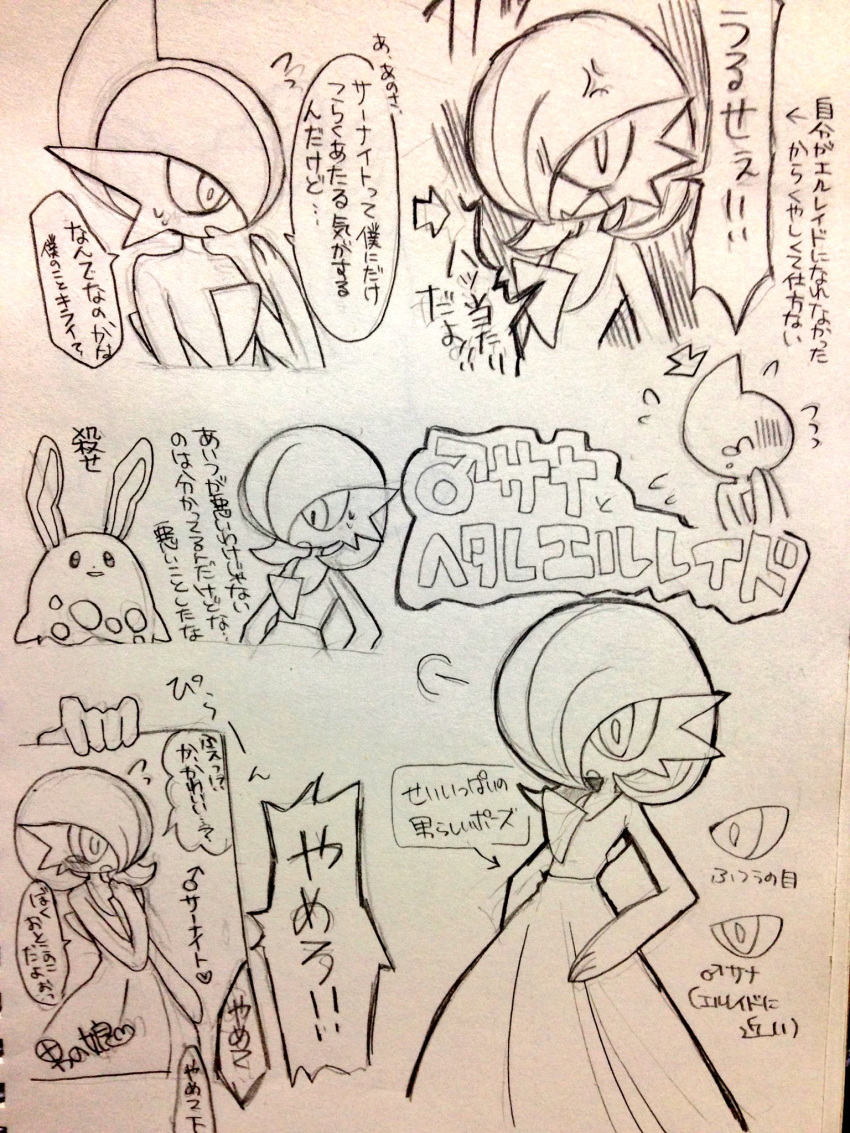 あ、あのさ、
サーナイトって僕にだけ
つらくあたる気がする
んだけど…
なんでなのかな
僕のことキライで、
うるせぇ!!!
自分がエルレイドになれなかった
からくやしくて仕方ない
だよ
♂サナと
ヘタレエルレイド
殺せ
あいつが悪いわけじゃない
のは分かってるんだけどな…
悪いことしたな
ぴらーん
かわいい…
ぼく
おとこのこ
だよぉっ
♂サーナイト♡
男の娘
やめろ!!!
やめて
やめて下
せいいっぱいの
男らしいポーズ
ふつうの目
♂サナ
(エルレイドに
近い)